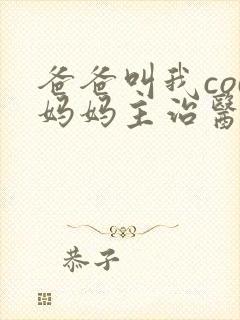 爸爸叫我co
妈妈主治醫
恭子